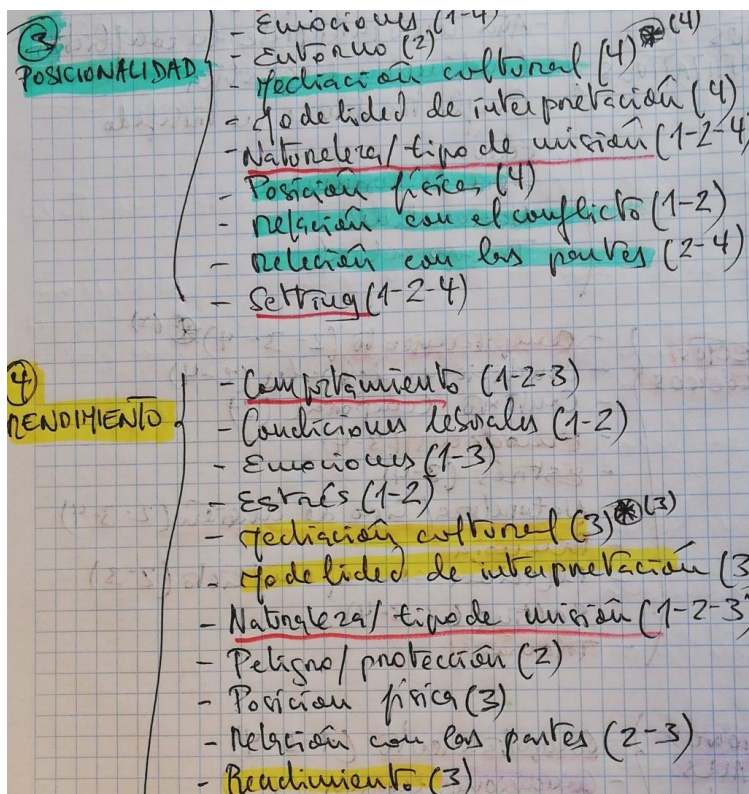 - Emociones (1-4)
- Entorno (2)
③ POSICIONALIDAD
- Mediación cultural (4) * (4)
- Modalidad de interpretación (4)
- Naturaleza/ tipo de misión (1-2-4)
- Posición física (4)
- Relación con el conflicto (1-2)
- Relación con las partes (2-4)
- Setting (1-2-4)
④ RENDIMIENTO
- Comportamiento (1-2-3)
- Condiciones laborales (1-2)
- Emociones (1-3)
- Estrés (1-2)
- Mediación cultural (3) * (3)
- Modalidad de interpretación (3
- Naturaleza/ tipo de misión (1-2-3
- Peligro/protección (2)
- Posición física (3)
- Relación con las partes (2-3)
- Rendimiento (3)